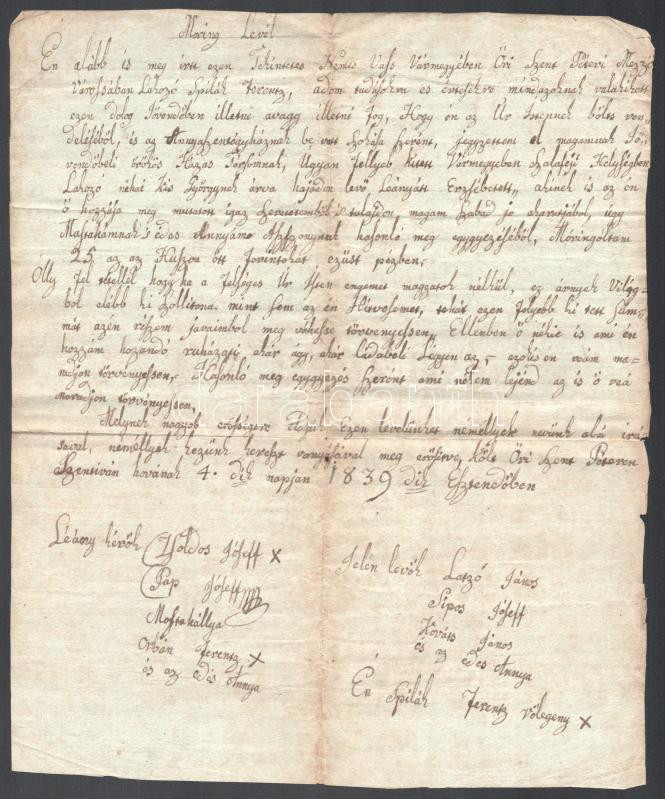 Móring Levél
Én alább is meg írtt ezen Tekéntetes Nemes Vass Vármegyében Őri Szent Péteri Mező
Várossában Lakozó Spilák Ferentz, adom tudásokra és értésekre mindazoknak valakiket
ezen dolog Jövendőben illetne avagy illetni fog, Hogy én az Úr Istennek bölts ren„
deléséből, és az Annyaszentégyháznak be vett Szokása Szerént, jegyzettem el magamnak Jö„
vendőbéli örökös Házas Társomnak, Ugyan fellyeb ki tett Vármegyében Szalaféji Helységben
Lakozó néhai Kis Györgynek árva hajadon levő Leányátt Ersébetett„ akinek is az én
ő hozzája meg mutatott igaz Szeretetemből is tulajdon magam Szabad jó akaratjából, úgy
Mastahámnak s édes Annyámo Aszszonynak hasonló meg eggyezéséből, Móringoltam
25 az az Huszon ött forintokat ezüst pézben,
Olly fel tétellel hogy ha a felséges Úr Isten engemet magzatok nélkül, ez árnyék Világ„
ból elébb ki Szóllítona. mint sem az én Hitvesemet, tehát ezen follyebb ki tett Sum„
mát azén részem javaimból meg vehesse törvényessen,. Ellenben ő nékie is ami én
hozzám hozandó ruházati akár ágy, akár Ládabéli Légyen az, azokis én reám ma„
radjon törvényessen,. Hasonló meg eggyezés Szerént ami nékem léjénd az is ő reá
maradjon törvényessen,
Melynek nagyob erősségére adjuk Ezen levelünket némellyek nevünk alá írá
sával, némellyek kezünk kereszt vonyásával meg erősitve, költ Őri Szent Péteren
Szentiván hovának 4. dik napján 1839 dik Esztendőben
Leány kérők Zsoldos Jóseff x
Pap Jóseff
Mostakállya
Orbán Ferentz x
és az édes Annya
Jelén levők Latzó János
Sipos Jóseff
Kováts János
és az édes Annya
Én Spilák Ferentz vőlegény x
darabanth